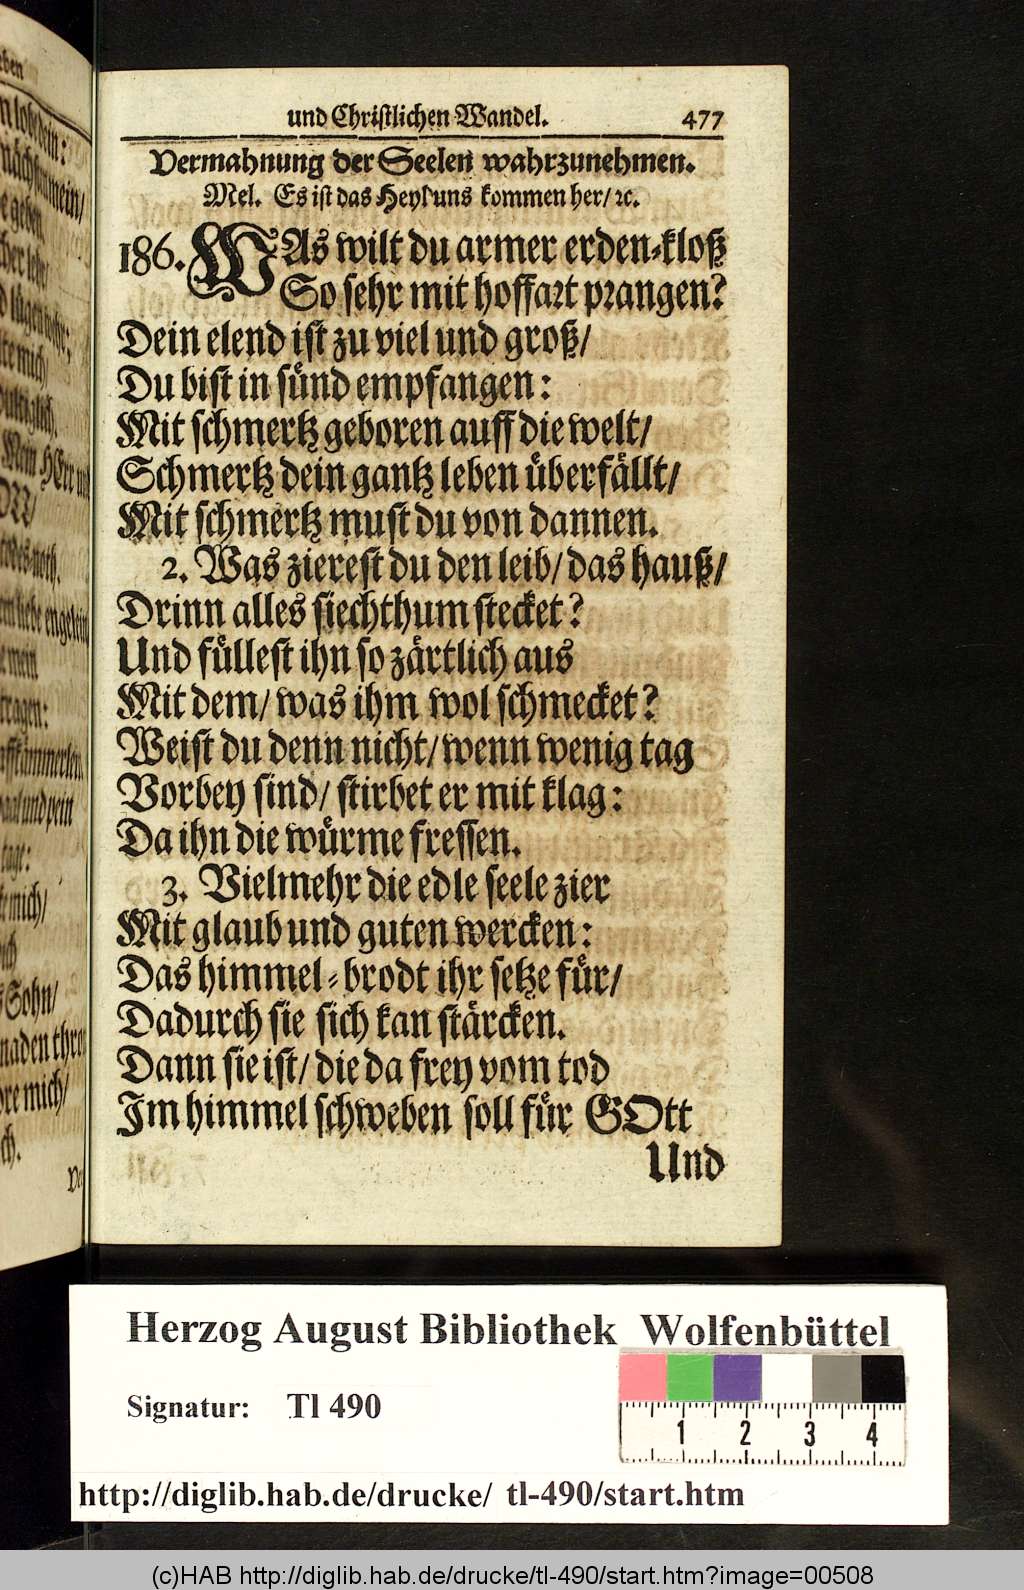 und Christlichen Wandel. 477
Vermahnung der Seelen wahrzunehmen.
Mel. Es ist das Heyl uns kommen her/ ꝛc.
186. WAs wilt du armer erden-kloß
So sehr mit hoffart prangen?
Dein elend ist zu viel und groß/
Du bist in sünd empfangen:
Mit schmertz geboren auff die welt/
Schmertz dein gantz leben überfällt/
Mit schmertz must du von dannen.
2. Was zierest du den leib/ das hauß/
Drinn alles siechthum stecket?
Und füllest ihn so zärtlich aus
Mit dem/ was ihm wol schmecket?
Weist du denn nicht/ wenn wenig tag
Vorbey sind/ stirbet er mit klag:
Da ihn die würme fressen.
3. Vielmehr die edle seele zier
Mit glaub und guten wercken:
Das himmel-brodt ihr setze für/
Dadurch sie sich kan stärcken.
Dann sie ist/ die da frey vom tod
Im himmel schweben soll für GOtt
Und
Herzog August Bibliothek Wolfenbüttel
Signatur: Tl 490
1 2 3 4
http://diglib.hab.de/drucke/ tl-490/start.htm
(c)HAB http://diglib.hab.de/drucke/tl-490/start.htm?image=00508